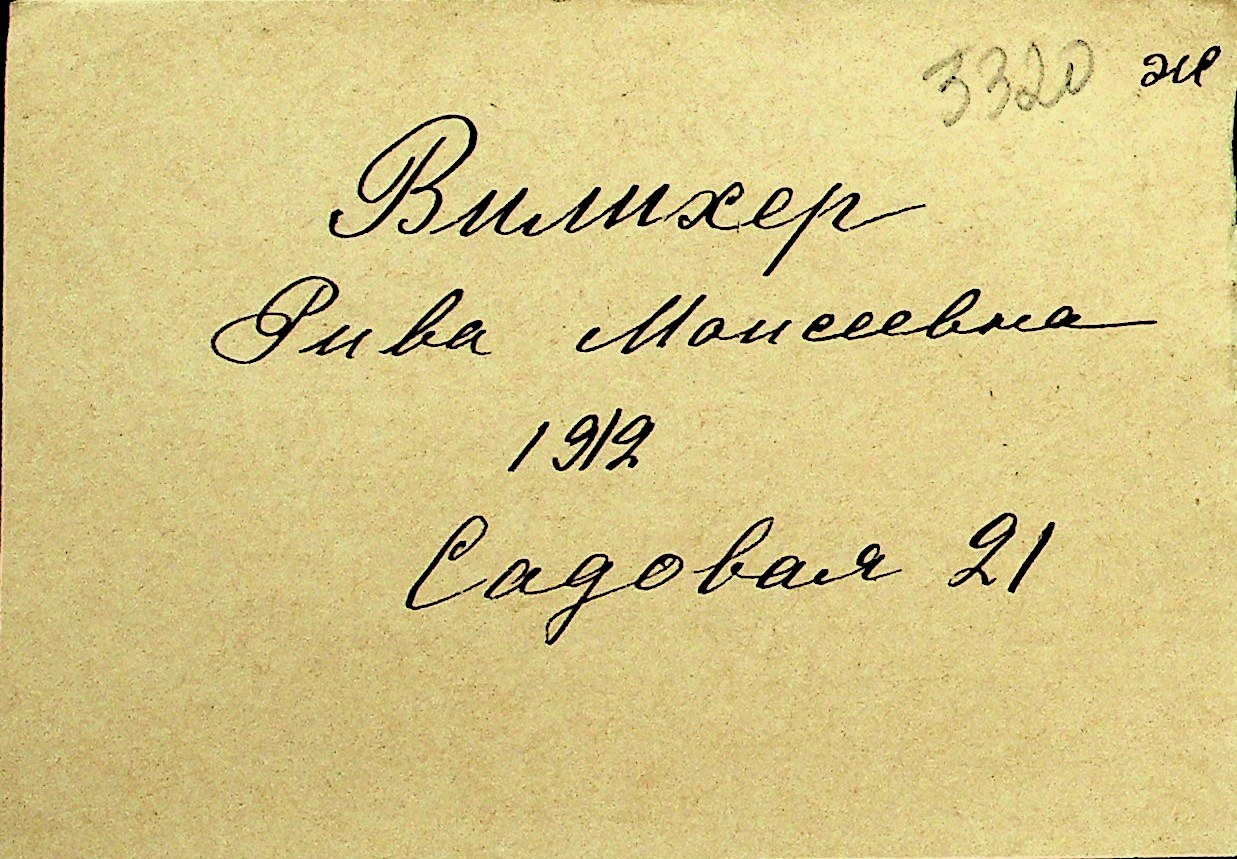 3320 ж
Вилихер
Рива Моисеевна
1912
Садовая 21